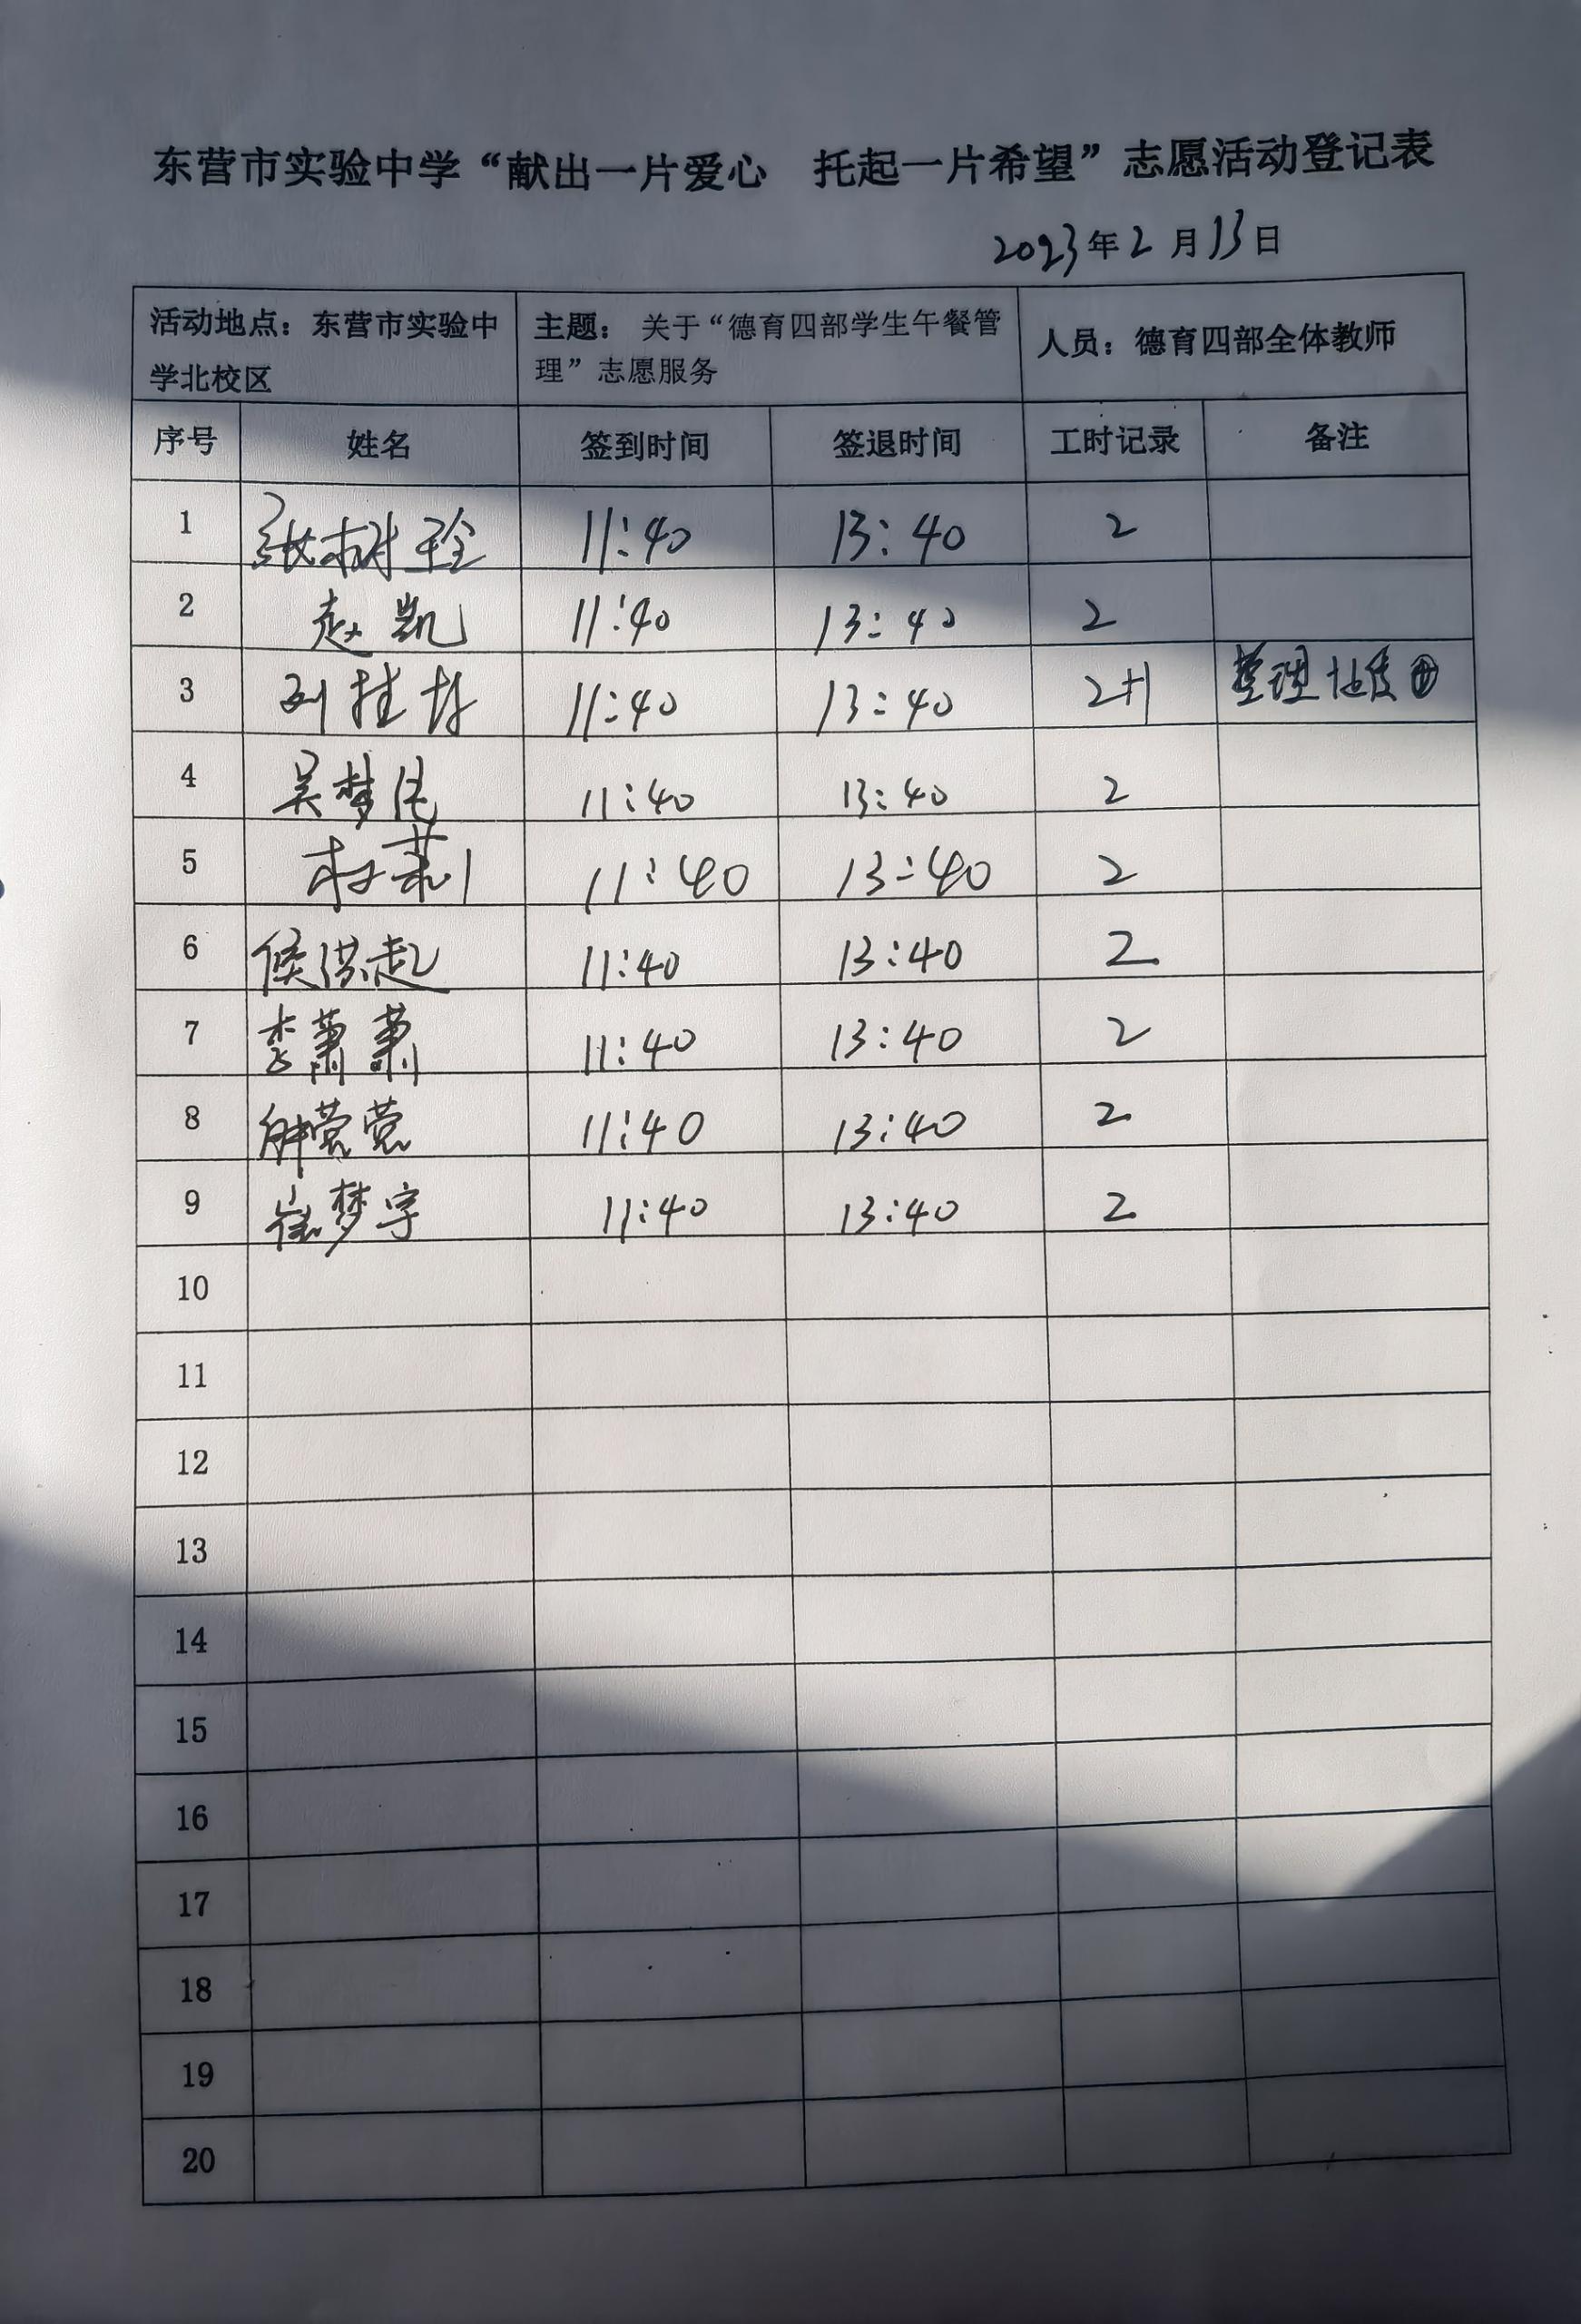 东营市实验中学“献出一片爱心 托起一片希望”志愿活动登记表
2023年2月13日
活动地点：东营市实验中学北校区 主题：关于“德育四部学生午餐管理”志愿服务 人员：德育四部全体教师
序号 姓名 签到时间 签退时间 工时记录 备注
1 张树全 11:40 13:40 2
2 赵凯 11:40 13:40 2
3 刘桂 11:40 13:40 2+1 整理
4 吴梦 11:40 13:40 2
5 11:40 13:40 2
6 侯洪起 11:40 13:40 2
7 李萧萧 11:40 13:40 2
8 解莹莹 11:40 13:40 2
9 崔梦宇 11:40 13:40 2
10
11
12
13
14
15
16
17
18
19
20